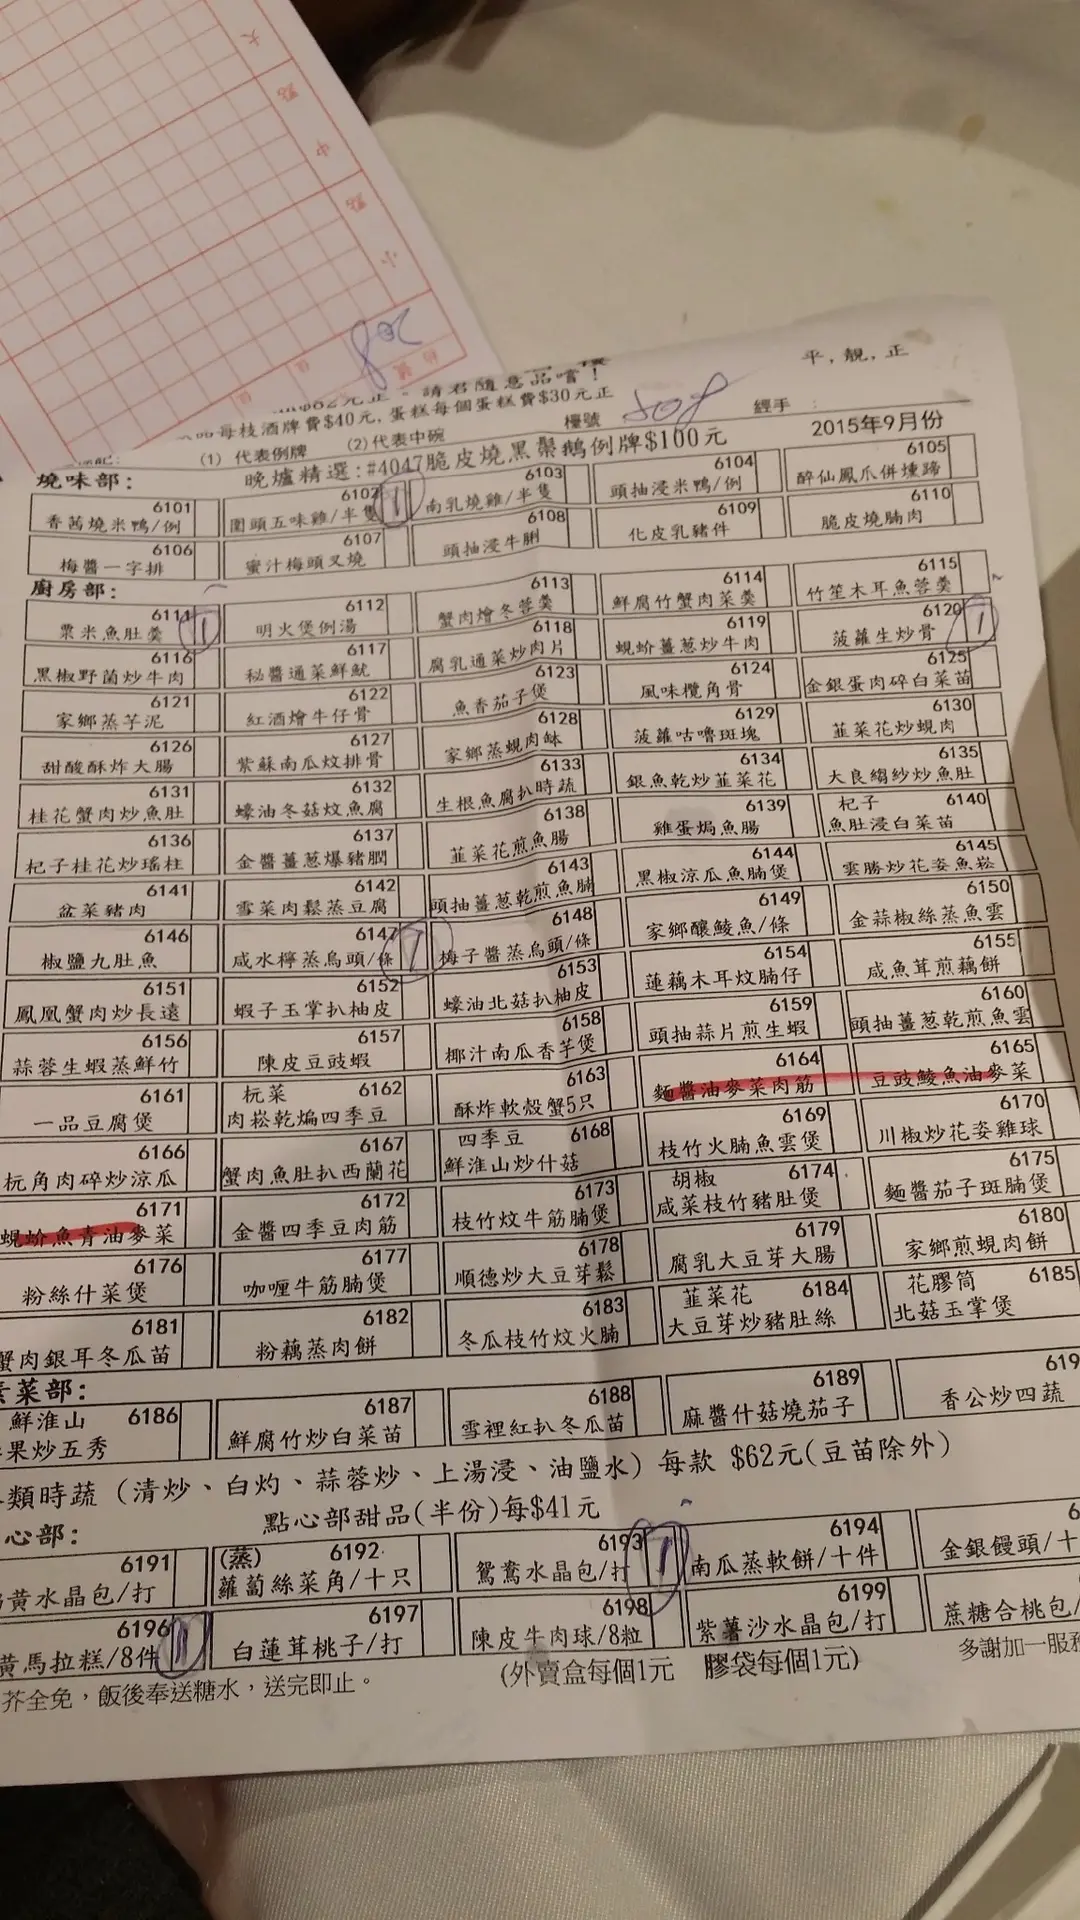 大
點
中
點
小
508
平,靚,正
請君隨意品嚐!
品每枝酒牌費$40元,蛋糕每個蛋糕費$30元正
檯號 508 經手:
(1) 代表例牌 (2)代表中碗 2015年9月份
晚爐精選:#4047脆皮燒黑鬃鵝例牌$100元
燒味部:
6101 香茜燒米鴨/例 6102 圍頭五味雞/半隻 1 6103 南乳燒雞/半隻 6104 頭抽浸米鴨/例 6105 醉仙鳳爪併燻蹄
6106 梅醬一字排 6107 蜜汁梅頭叉燒 6108 頭抽浸牛脷 6109 化皮乳豬件 6110 脆皮燒腩肉
廚房部:
6111 粟米魚肚羹 1 6112 明火煲例湯 6113 蟹肉燴冬蓉羹 6114 鮮腐竹蟹肉菜羹 6115 竹笙木耳魚蓉羹
6116 黑椒野菌炒牛肉 6117 秘醬通菜鮮魷 6118 腐乳通菜炒肉片 6119 蜆蚧薑葱炒牛肉 6120 菠蘿生炒骨 1
6121 家鄉蒸芋泥 6122 紅酒燴牛仔骨 6123 魚香茄子煲 6124 風味欖角骨 6125 金銀蛋肉碎白菜苗
6126 甜酸酥炸大腸 6127 紫蘇南瓜炆排骨 6128 家鄉蒸蜆肉缽 6129 菠蘿咕嚕斑塊 6130 韮菜花炒蜆肉
6131 桂花蟹肉炒魚肚 6132 蠔油冬菇炆魚腐 6133 生根魚腐扒時蔬 6134 銀魚乾炒韮菜花 6135 大良縐紗炒魚肚
6136 杞子桂花炒瑤柱 6137 金醬薑葱爆豬膶 6138 韮菜花煎魚腸 6139 雞蛋焗魚腸 6140 杞子魚肚浸白菜苗
6141 盆菜豬肉 6142 雪菜肉鬆蒸豆腐 6143 頭抽薑葱乾煎魚腩 6144 黑椒涼瓜魚腩煲 6145 雲勝炒花姿魚崧
6146 椒鹽九肚魚 6147 咸水檸蒸烏頭/條 1 6148 梅子醬蒸烏頭/條 6149 家鄉釀鯪魚/條 6150 金蒜椒絲蒸魚雲
6151 鳳凰蟹肉炒長遠 6152 蝦子玉掌扒柚皮 6153 蠔油北菇扒柚皮 6154 蓮藕木耳炆腩仔 6155 咸魚茸煎藕餅
6156 蒜蓉生蝦蒸鮮竹 6157 陳皮豆豉蝦 6158 椰汁南瓜香芋煲 6159 頭抽蒜片煎生蝦 6160 頭抽薑葱乾煎魚雲
6161 一品豆腐煲 6162 杬菜肉崧乾煸四季豆 6163 酥炸軟殼蟹5只 6164 麵醬油麥菜肉筋 6165 豆豉鯪魚油麥菜
6166 杬角肉碎炒涼瓜 6167 蟹肉魚肚扒西蘭花 6168 四季豆鮮淮山炒什菇 6169 枝竹火腩魚雲煲 6170 川椒炒花姿雞球
6171 蜆蚧魚青油麥菜 6172 金醬四季豆肉筋 6173 枝竹炆牛筋腩煲 6174 胡椒咸菜枝竹豬肚煲 6175 麵醬茄子斑腩煲
6176 粉絲什菜煲 6177 咖喱牛筋腩煲 6178 順德炒大豆芽鬆 6179 腐乳大豆芽大腸 6180 家鄉煎蜆肉餅
6181 蟹肉銀耳冬瓜苗 6182 粉藕蒸肉餅 6183 冬瓜枝竹炆火腩 6184 韮菜花大豆芽炒豬肚絲 6185 花膠筒北菇玉掌煲
素菜部:
6186 鮮淮山果炒五秀 6187 鮮腐竹炒白菜苗 6188 雪裡紅扒冬瓜苗 6189 麻醬什菇燒茄子 619 香公炒四蔬
類時蔬 (清炒、白灼、蒜蓉炒、上湯浸、油鹽水) 每款 $62元(豆苗除外)
心部: 點心部甜品(半份)每$41元
6191 黃水晶包/打 6192 (蒸)蘿蔔絲菜角/十只 6193 鴛鴦水晶包/打 1 6194 南瓜蒸軟餅/十件 6 金銀饅頭/十
6196 黃馬拉糕/8件 1 6197 白蓮茸桃子/打 6198 陳皮牛肉球/8粒 6199 紫薯沙水晶包/打 6 蔗糖合桃包/
芥全免,飯後奉送糖水,送完即止。 (外賣盒每個1元 膠袋每個1元) 多謝加一服務